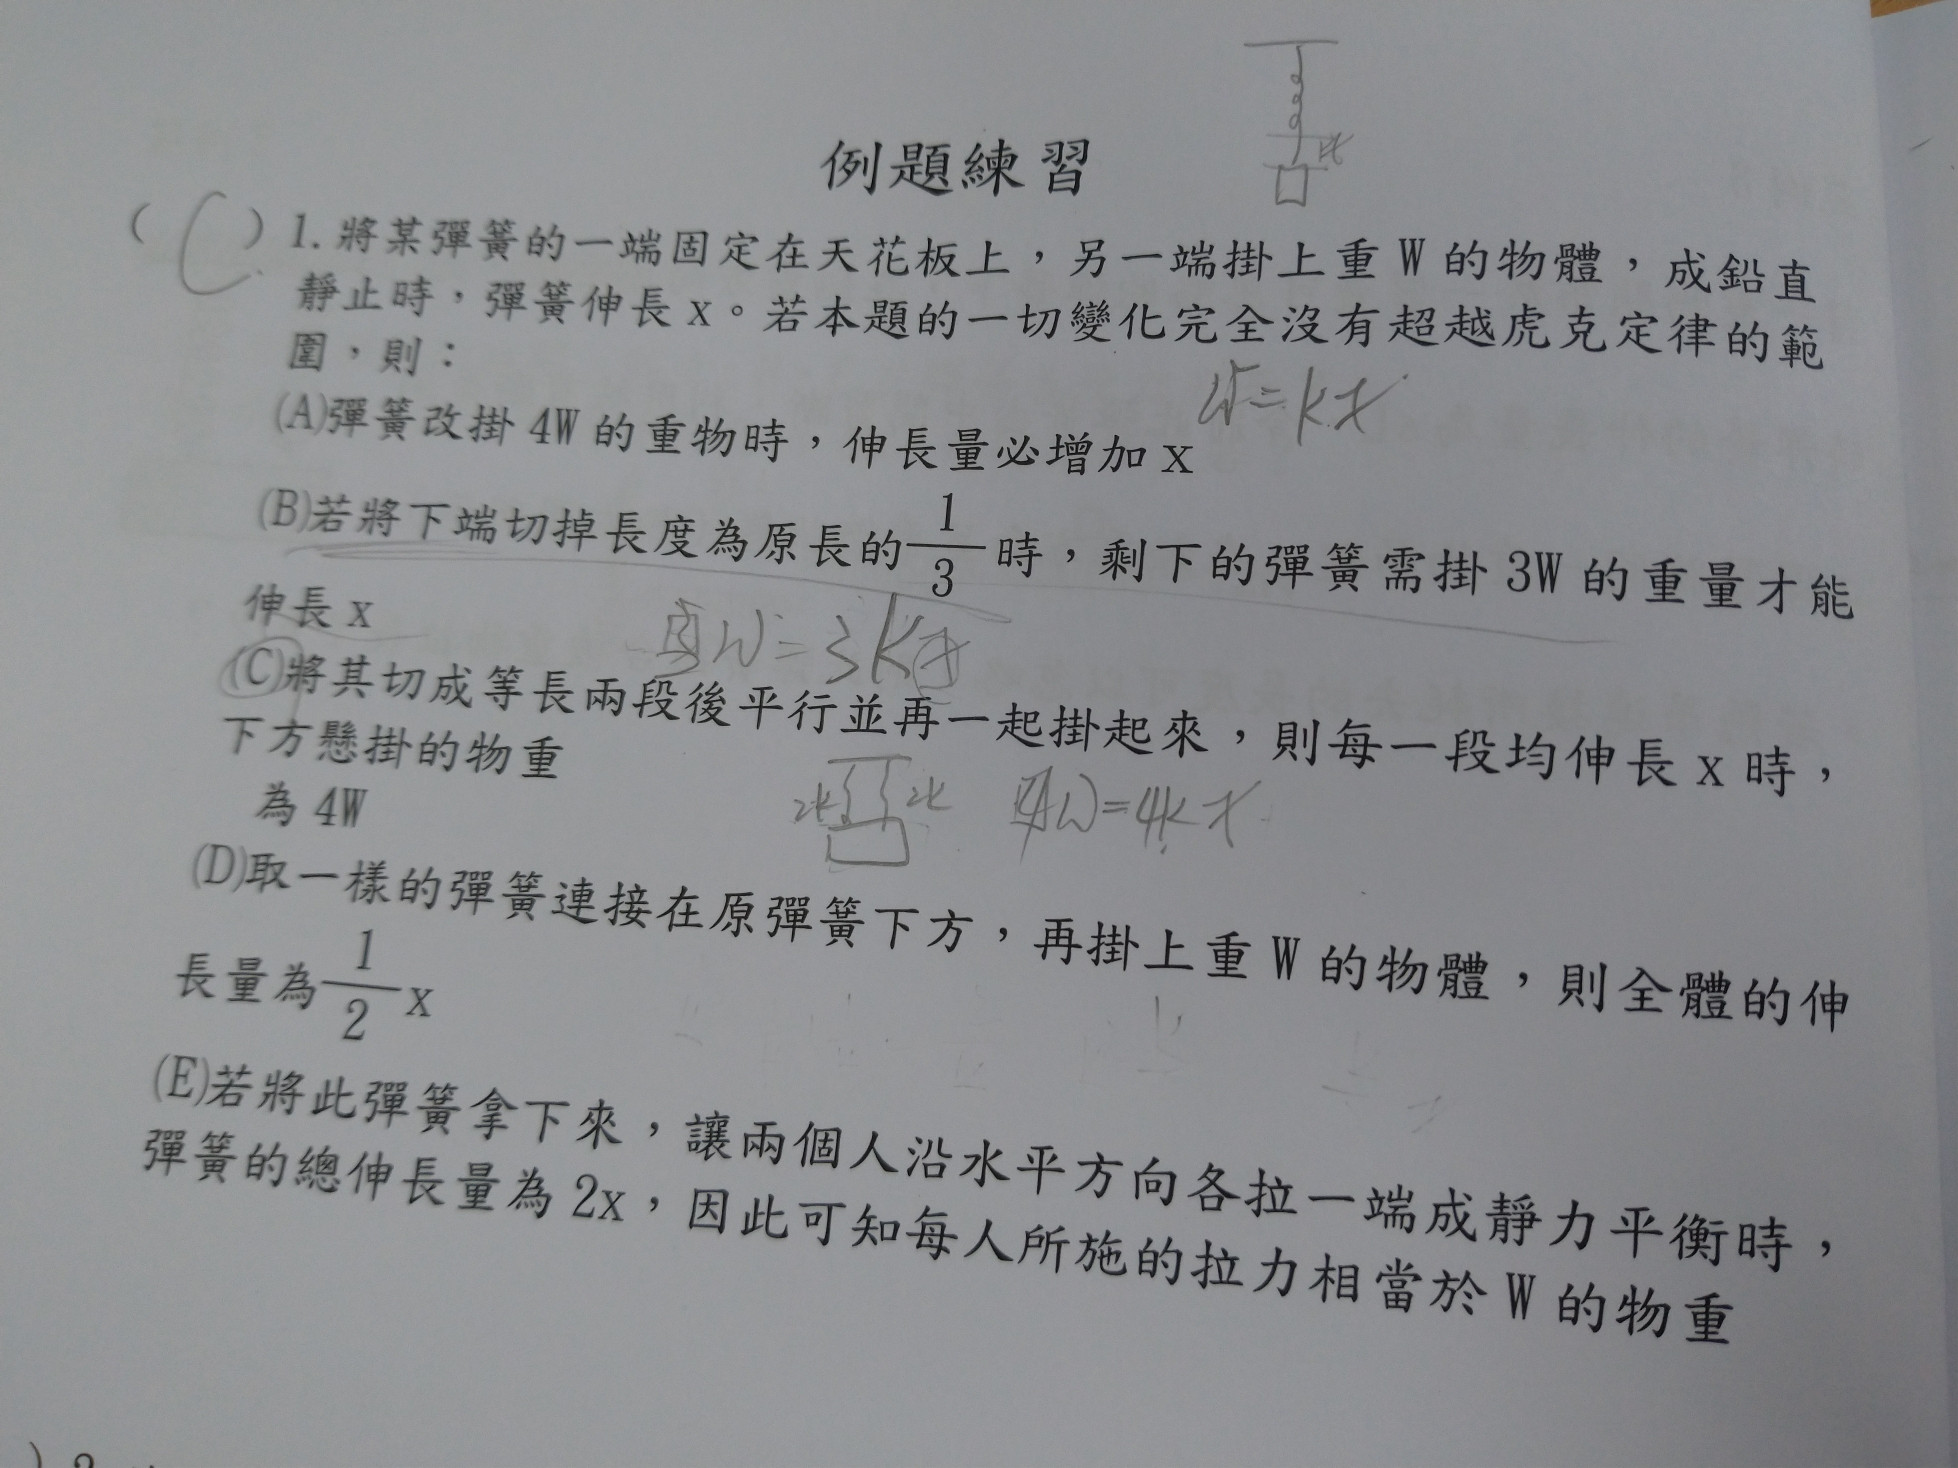 例題練習
(C) 1. 將某彈簧的一端固定在天花板上，另一端掛上重 W 的物體，成鉛直
靜止時，彈簧伸長 x。若本題的一切變化完全沒有超越虎克定律的範
圍，則：
W=kx
(A)彈簧改掛 4W 的重物時，伸長量必增加 x
(B)若將下端切掉長度為原長的 1/3 時，剩下的彈簧需掛 3W 的重量才能
伸長 x
W=3kx
(C)將其切成等長兩段後平行並再一起掛起來，則每一段均伸長 x 時，
下方懸掛的物重
為 4W
2k 2k 4W=4kx
(D)取一樣的彈簧連接在原彈簧下方，再掛上重 W 的物體，則全體的伸
長量為 1/2 x
(E)若將此彈簧拿下來，讓兩個人沿水平方向各拉一端成靜力平衡時，
彈簧的總伸長量為 2x，因此可知每人所施的拉力相當於 W 的物重